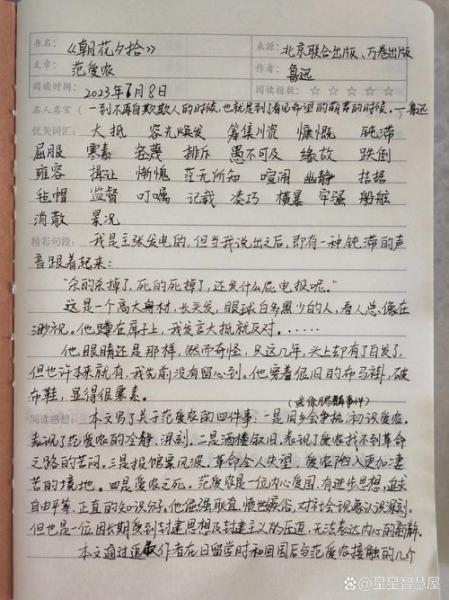 书名：《朝花夕拾》 来源：北京联合出版、万卷出版
文章：范爱农 作者：鲁迅
阅读时间：2023年7月8日 阅读指数：☆☆☆☆☆
名人名言（一到不再自欺欺人的时候，也就是到了看见希望的萌芽的时候。—鲁迅
优美词汇：大抵 容光焕发 筹集川资 慷慨 钝滞
屈服 寒素 轻蔑 排斥 愚不可及 缘故 跌倒
雍容 揖让 惭愧 茫无所知 喧闹 幽静 拮据
毡帽 监督 叮嘱 记载 凑巧 横暴 牢骚 船舷
消散 景况
精彩句段：我是主张发电的，但当我说出之后，即有一种钝滞的声
音跟着起来：
“杀的杀掉了，死的死掉了，还发什么屁电报呢。”
这是一个高大身材，长头发，眼球白多黑少的人，看人总像在
渺视。他蹲在席子上，我发言大抵就反对。……
他眼睛还是那样，然而奇怪，只这几年，头上却有了白发了，
但也许本来就有，我先前没有留心到。他穿着很旧的布马褂，破
布鞋，显得很寒素。
阅读感想：本文写了关于范爱农的四件事：一是同乡会争执，初识爱农。
表现了范爱农的冷静、深刻。二是酒楼叙旧，表现了爱农找不到革命
之路的苦闷。三是报馆案风波，革命令人失望，爱农陷入更加凄
苦的境地。四是爱农之死。范爱农是一位内心爱国，有进步思想，追求
自由平等、正直的知识分子。他倔强耿直，愤世嫉俗，对社会现象认识深刻。
但也是一位因长期受到封建思想及封建主义的压迫，无法表达内心的
本文通过追叙作者在日留学时和回国后与范爱农接触的几个
@星星智慧屋